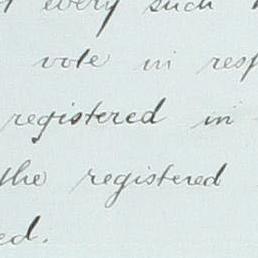 every such
vote in resp
registered in
the registered
ed.